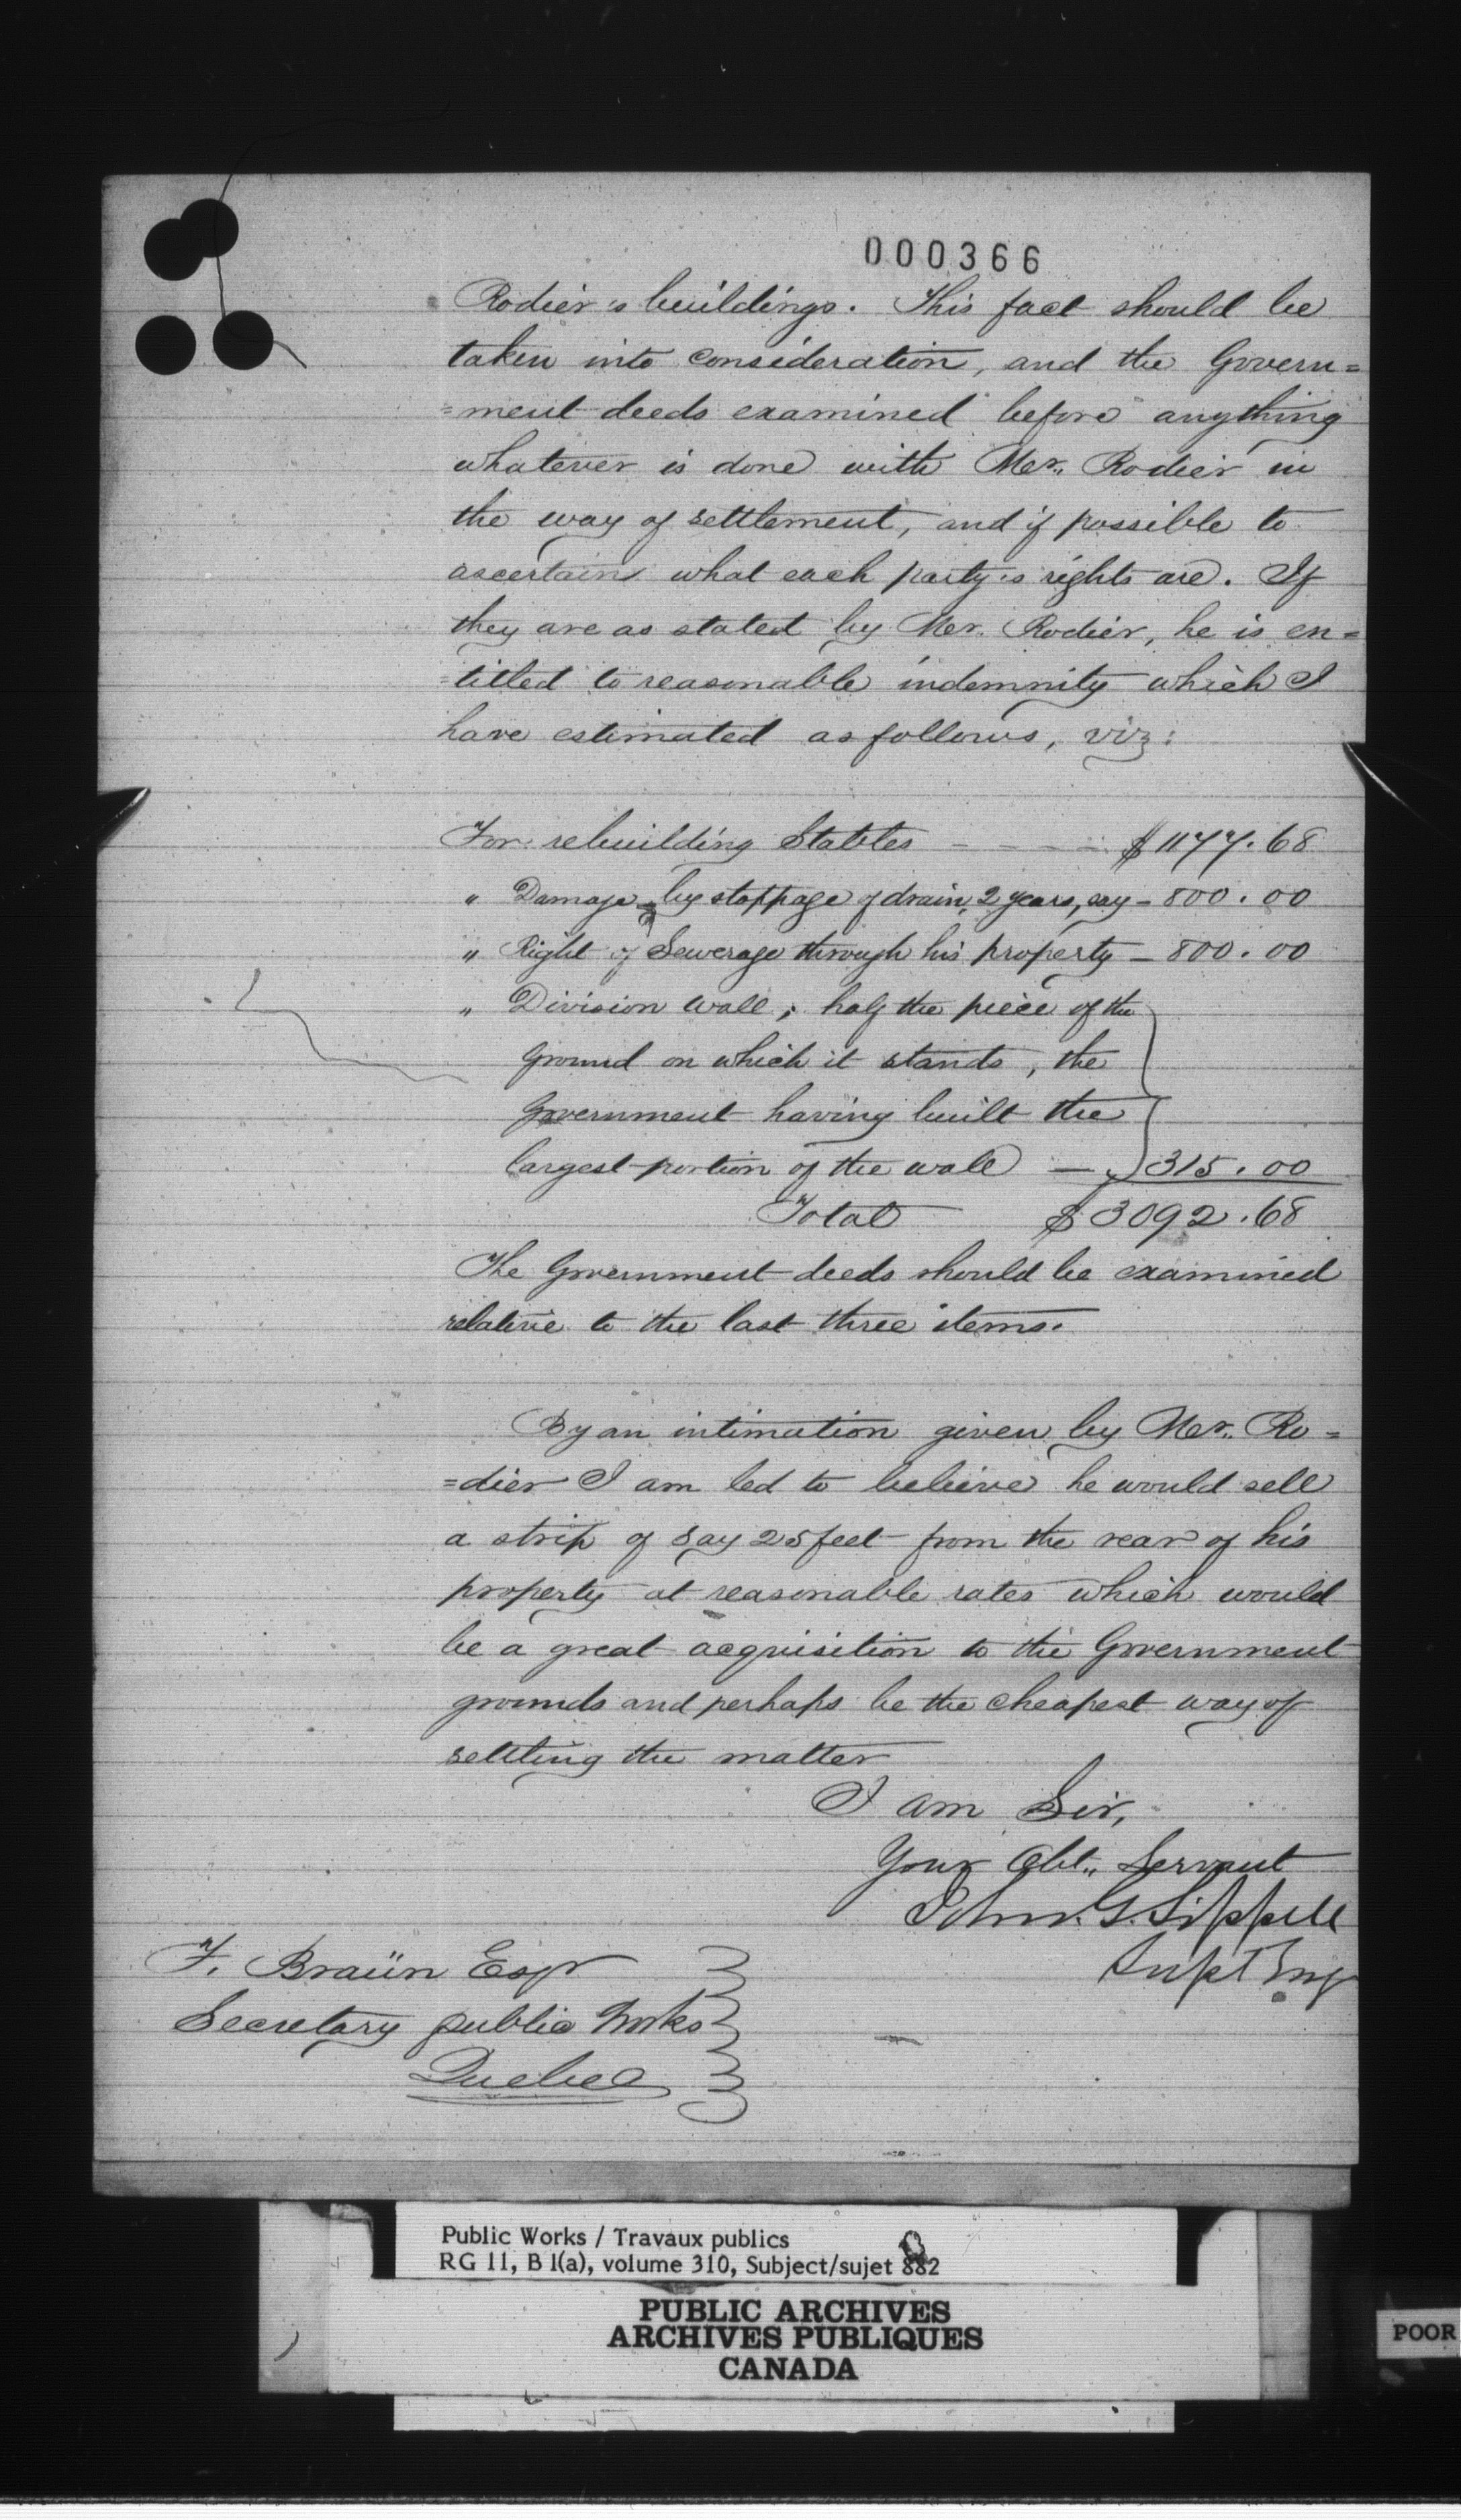 000366
Rodier's buildings. This fact should be
taken into consideration, and the Govern=
=ment deeds examined before anything
whatever is done with Mr. Rodier in
the way of settlement, and if possible to
ascertain what each party's rights are. If
they are as stated by Mr. Rodier, he is en=
=titled to reasonable indemnity which I
have estimated as follows, viz:
For rebuilding Stables - - - - $1177.68
" Damage by stoppage of drain, 2 years, say - 800.00
" Right of Sewerage through his property - 800.00
" Division wall; half the piece of the
ground on which it stands, the
Government having built the
largest portion of the wall - 315.00
Total $3092.68
The Government deeds should be examined
relative to the last three items.
By an intimation given by Mr. Ro=
=dier I am led to believe he would sell
a strip of say 25 feet from the rear of his
property at reasonable rates which would
be a great acquisition to the Government
grounds and perhaps be the cheapest way of
settling the matter
I am Sir,
Your Obt. Servant
John. G. Sippell
Supt Eng
F. Braün Esqr
Secretary public Works
Quebec
Public Works / Travaux publics
RG 11, B 1(a), volume 310, Subject/sujet 882
PUBLIC ARCHIVES
ARCHIVES PUBLIQUES
CANADA
POOR